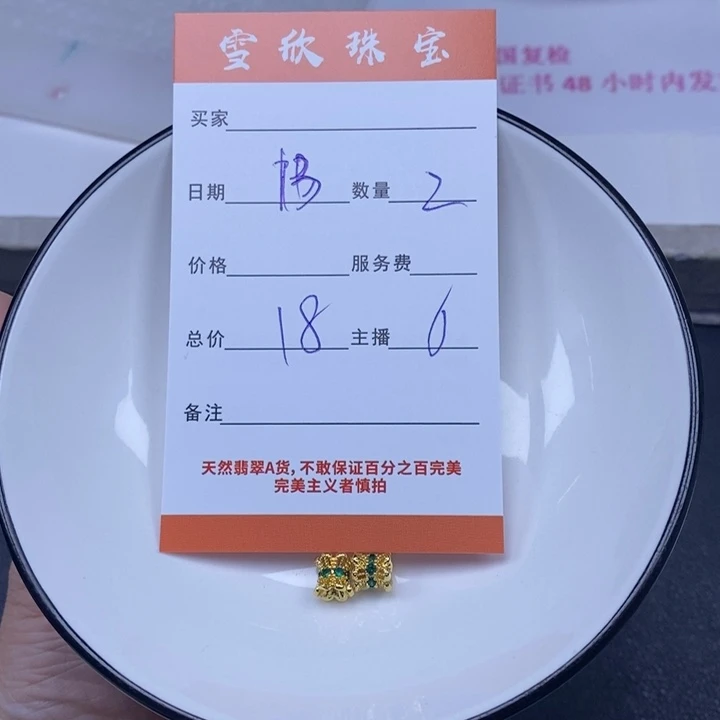 雪欣珠宝
国复检
证书 48 小时内发
买家
日期 杨 数量 2
价格 服务费
总价 18 主播 6
备注
天然翡翠A货, 不敢保证百分之百完美
完美主义者慎拍